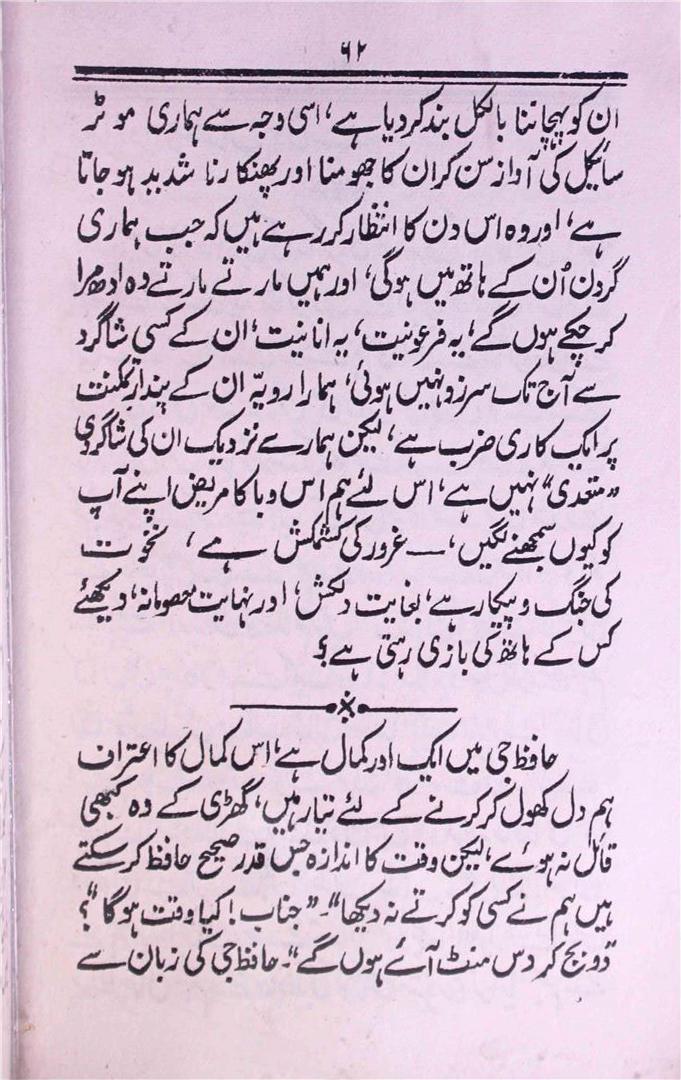 ۶۲
ان کو پہچاننا بالکل بند کر دیا ہے، اسی وجہ سے ہماری موٹر
سائیکل کی آواز سن کر ان کا جھومنا اور پھنکارنا شدید ہو جاتا
ہے، اور وہ اس دن کا انتظار کر رہے ہیں کہ جب ہماری
گردن اُن کے ہاتھ میں ہوگی، اور ہمیں مارتے مارتے وہ ادھ مرا
کر چکے ہوں گے، یہ فرعونیت، یہ انانیت، ان کے کسی شاگرد
سے آج تک سرزد نہیں ہوئی، ہمارا رویہّ ان کے پندار تمکنت
پر ایک کاری ضرب ہے، لیکن ہمارے نزدیک ان کی شاگردی
”متعدی“ نہیں ہے، اس لئے ہم اس وبا کا مریض اپنے آپ
کو کیوں سمجھنے لگیں، ــــ غرور کی کشمکش ہے، نخوت
کی جنگ و پیکار ہے، بغایت دلکش، اور نہایت معصومانہ، دیکھئے
کس کے ہاتھ کی بازی رہتی ہے؟
حافظ جی میں ایک اور کمال ہے، اس کمال کا اعتراف
ہم دل کھول کر کرنے کے لئے تیار ہیں، گھڑی کے وہ کبھی
قائل نہ ہوئے، لیکن وقت کا اندازہ جس قدر صحیح حافظ کر سکتے
ہیں ہم نے کسی کو کرتے نہ دیکھا“۔ ”جناب! کیا وقت ہوگا“؟
”دو بج کر دس منٹ آئے ہوں گے“۔ حافظ جی کی زبان سے